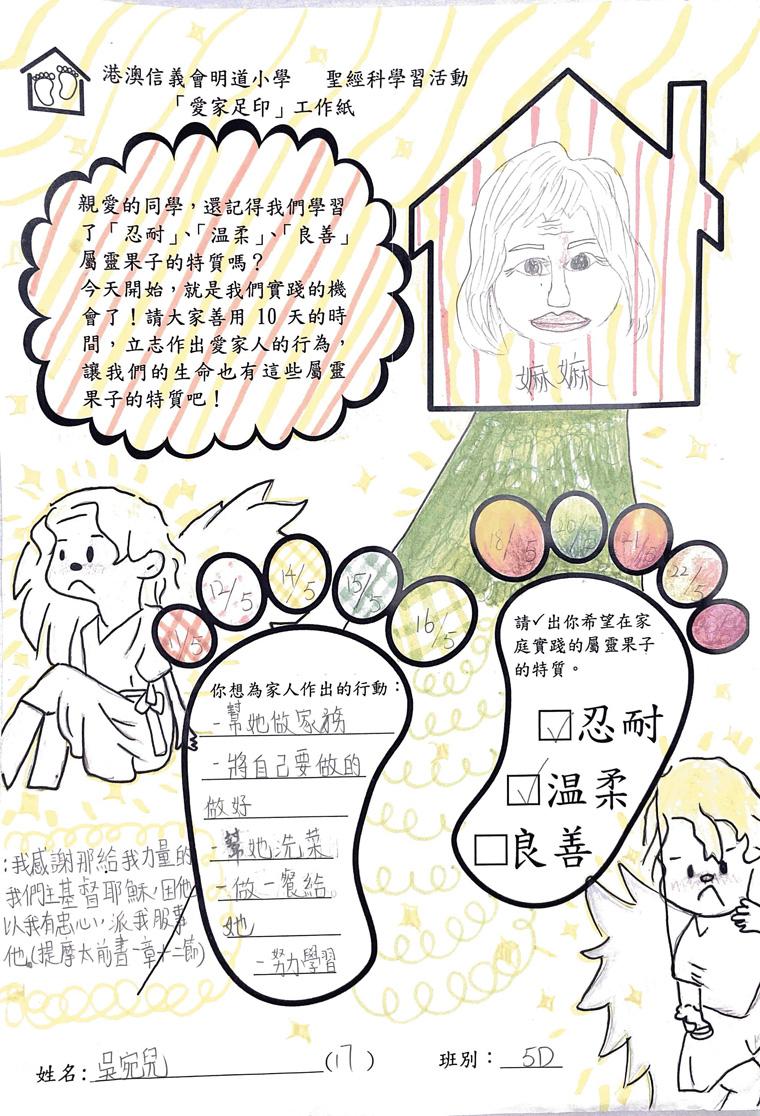 港澳信義會明道小學 聖經科學習活動
「愛家足印」工作紙
親愛的同學，還記得我們學習
了「忍耐」、「溫柔」、「良善」
屬靈果子的特質嗎？
今天開始，就是我們實踐的機
會了！請大家善用 10 天的時
間，立志作出愛家人的行為，
讓我們的生命也有這些屬靈
果子的特質吧！
嫲嫲
11/5
12/5
14/5
15/5
16/5
18/5
20/5
21/5
22/5
你想為家人作出的行動：
-幫她做家務
-將自己要做的
做好
-幫她洗菜
-做一餐給
她
-努力學習
請✓出你希望在家
庭實踐的屬靈果子
的特質。
☑忍耐
☑溫柔
☐良善
:我感謝那給我力量的
我們主基督耶穌，因他
以我有忠心，派我服事
他。(提摩太前書一章十二節)
姓名：吳宛兒(17)
班別：5D